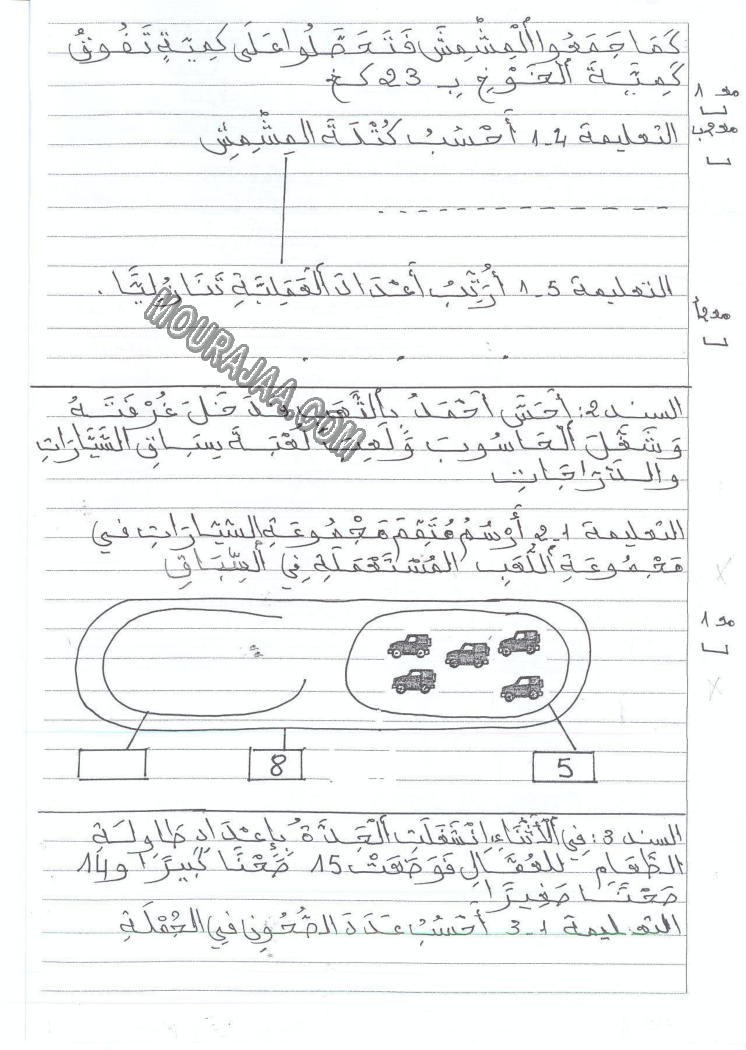 كَمَا جَمَعُوا الْمِشْمِشَ فَتَحَصَّلُوا عَلَى كَمِيَّةٍ تَفُوقُ
كَمِيَّةَ الْخَوْخِ بِـ 23 كغ
مع 1
التعليمة 4-1 أَحْسُبُ كُتْلَةَ المِشْمِشِ
مع2ب
التعليمة 5-1 أُرَتِّبُ أَعْدَادَ الْعَمَلِيَّةِ تَنَازُلِيًّا.
مع2أ
MOURAJAA.COM
السند 2: أَحَسَّ أَحْمَدُ بِالتَّعَبِ فَدَخَلَ غُرْفَتَهُ
وَشَغَّلَ الْحَاسُوبَ وَلَعِبَ لُعْبَةَ سِبَاقِ السَّيَّارَاتِ
والدَّرَّاجَاتِ
التعليمة 1-2 أَرْسُمُ مُتَمِّمَ مَجْمُوعَةِ السَّيَّارَاتِ في
مَجْمُوعَةِ اللُّعَبِ المُسْتَعْمَلَةِ فِي السِّبَاقِ
مع 1
8
5
السند 3: فِي الْأَثْنَاءِ انْشَغَلَتِ الْجَدَّةُ بِإِعْدَادِ طَاوِلَةِ
الطَّعَامِ للعُمَّالِ فَوَضَعَتْ 15 صَحْنًا كَبِيرًا و14
صَحْنًا صَغِيرًا
التعليمة 1-3 أَحْسُبُ عَدَدَ الصُّحُونِ فِي الجُمْلَةِ